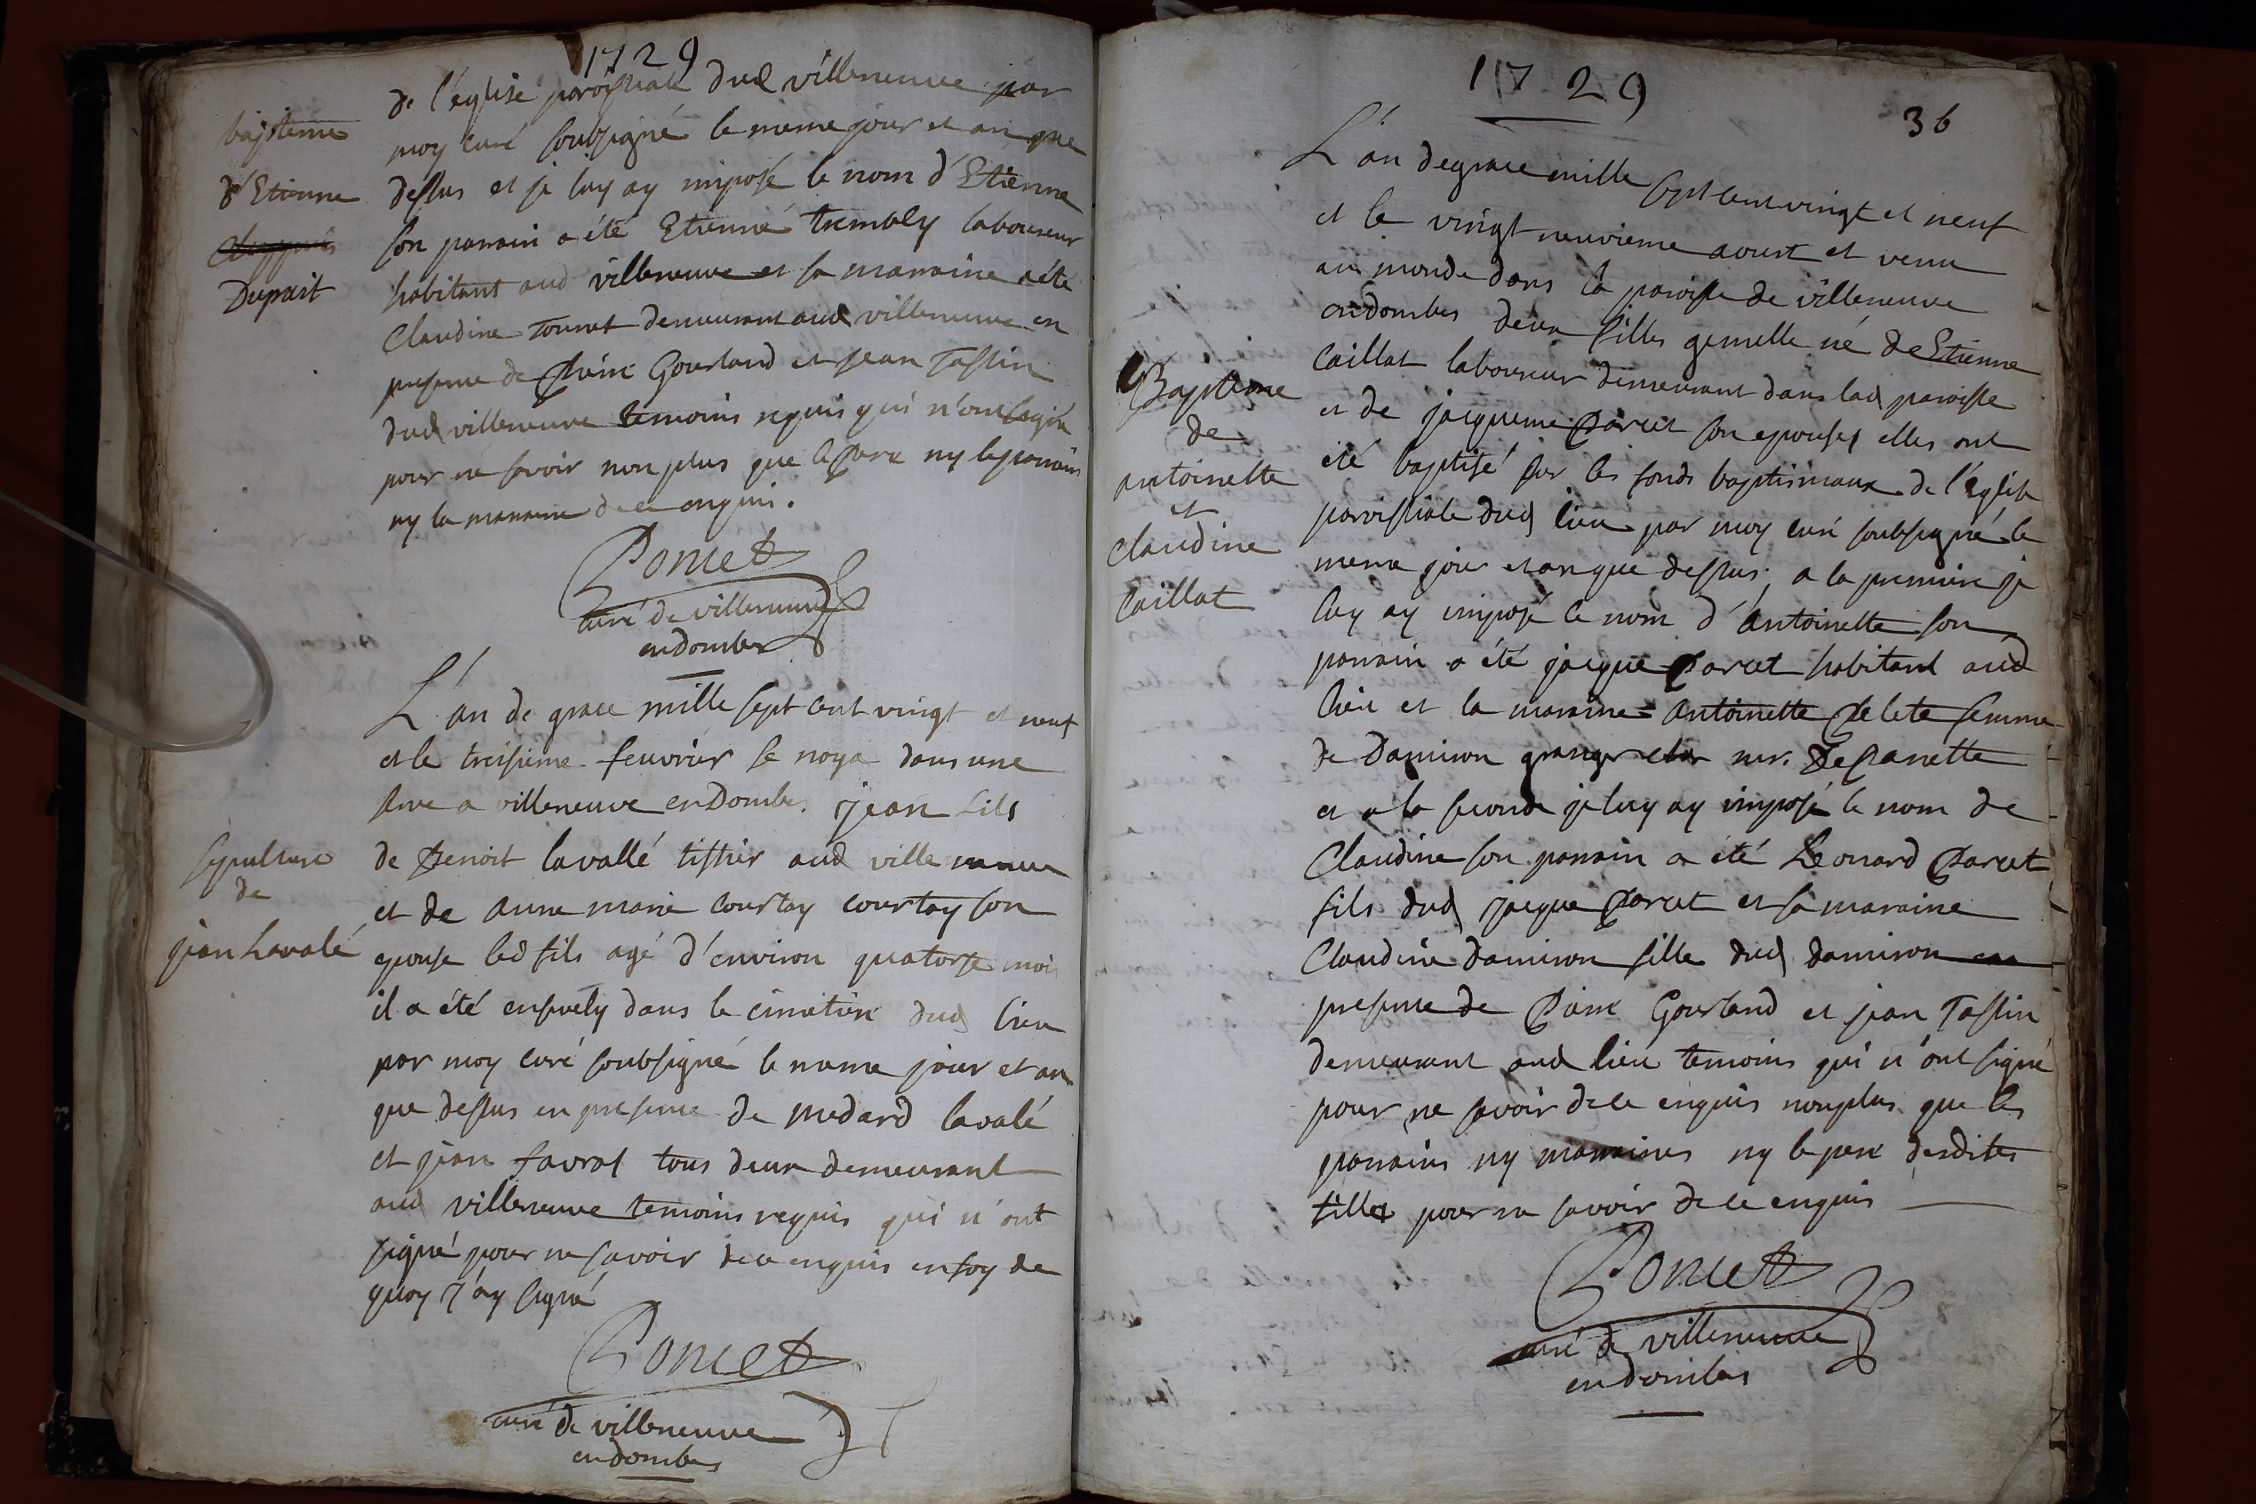 1729
de l'église paroissiale dud villeneuve par
moy curé soubsigné le meme jour et an que
dessus et je luy ay imposé le nom d'Etienne
son parrain a été Etienne trembly laboureur
habitant aud villeneuve et sa marraine a été
Claudine tournet demeurant aud villeneuve en
presence de Pierre Gourland et jean Tassin
dud villeneuve temoins requis qui n'ont signé
pour ne savoir non plus que le pere ny le parrain
ny la marraine de ce enquis.
Poncet
curé de villeneuve
en dombes
bapteme
d'Etienne
Duprist
L'an de grace mille sept cent vingt et neuf
et le treisieme feuvrier se noya dans une
serve a villeneuve en Dombes jean fils
de Benoit lavallé tissier aud villeneuve
et de anne marie courtay courtay son
epouse led fils agé d'environ quatorse mois
il a été ensevely dans le cimetiere dud lieu
par moy curé soubsigné le meme jour et an
que dessus en presence de medard lavalé
et jean favrol tous deux demeurant
aud villeneuve temoins requis qui n'ont
signé pour ne savoir de ce enquis en foy de
quoy j'ay signé
Poncet
curé de villeneuve
en dombes
sepulture
de
jean Lavalé
1729
36
L'an de grace mille sept cent vingt et neuf
et le vingt neuvieme aoust et venu
au monde dans la paroisse de villeneuve
en dombes deux filles gemelle né de Etienne
Caillat laboureur demeurant dans lad paroisse
et de jacqueme Parcet son epouse, elles ont
été baptisé sur les fonds baptismaux de l'église
paroissiale dud lieu par moy curé soubsigné le
meme jour et an que dessus, a la premiere je
luy ay imposé le nom d'Antoinette son
parrain a été jacque Parcet habitant aud
lieu et la maraine Antoinette femme
de Damiron granger mr.
et a la seconde je luy ay imposé le nom de
Claudine son parrain a été Leonard Parcet
fils dud jacque Parcet et sa maraine
Claudine damiron fille dud damiron en
presence de Pierre Gourland et jean Tassin
demeurant aud lieu temoins qui n'ont signé
pour ne savoir de ce enquis non plus que les
parrains ny marraines ny le pere desdites
filles pour ne savoir de ce enquis
Poncet
curé de villeneuve
en dombes
Bapteme
de
antoinette
et
claudine
Caillat